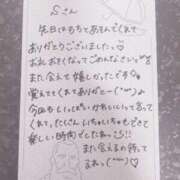 Sさん
先日はもちとあそんでくれて
ありがとうございましたっ♡
お礼おそくなってごめんなさい
また会えて嬉しかったです
覚えててくれてありがと
今回もいっぱいかわいいって言って
くれて、たくさんいちゃいちゃもでき
て楽しい時間でしたね♡!!
また会えるの待って
るねっ